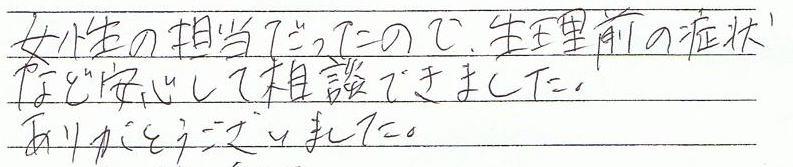 女性の担当だったので、生理前の症状
など安心して相談できました。
ありがとうございました。